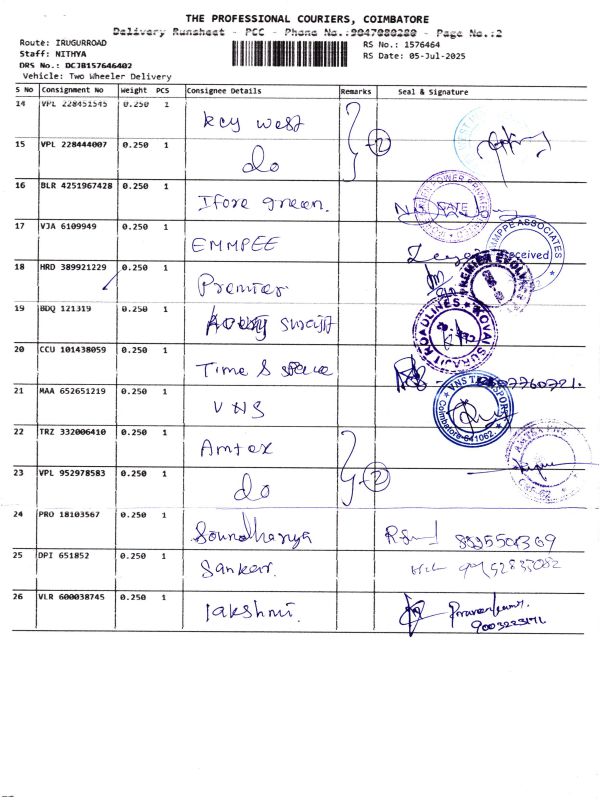 THE PROFESSIONAL COURIERS, COIMBATORE
Delivery Runsheet - PCC - Phone No.:9047080280 - Page No.:2
Route: IRUGURROAD
Staff: NITHYA
DRS No.: DCJB157646402
Vehicle: Two Wheeler Delivery
RS No.: 1576464
RS Date: 05-Jul-2025
S No Consignment No Weight PCS Consignee Details Remarks Seal & Signature
14 VPL 228451545 0.250 1 key west
15 VPL 228444007 0.250 1 do
16 BLR 4251967428 0.250 1 Ifore green.
17 VJA 6109949 0.250 1 EMMPEE
18 HRD 389921229 0.250 1 Premier
19 BDQ 121319 0.250 1
20 CCU 101438059 0.250 1 Time & space
21 MAA 652651219 0.250 1 VNS
22 TRZ 332006410 0.250 1 Amtex
23 VPL 952978583 0.250 1 do
24 PRO 18103567 0.250 1 Soundharya
25 DPI 651852 0.250 1 Sankar.
26 VLR 600038745 0.250 1 lakshmi.
2
GATE
ASSOCIATES
Received
ROADLINES
VNS TRANSPORT
Coimbatore-641062
2
9003223171